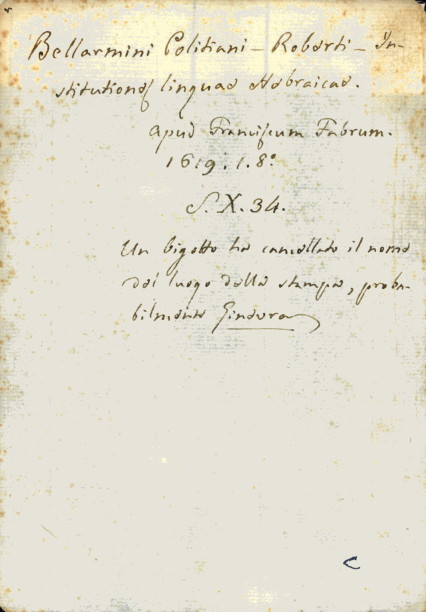 Bellarmini Politiani - Roberti - In-
stitutiones linguae Hebraicae.
apud Franciscum Fabrum.
1619. 1. 8º.
S. X. 34.
Un bigotto ha cancellato il nome
del luogo della stampa, proba-
bilmente Ginevra
C